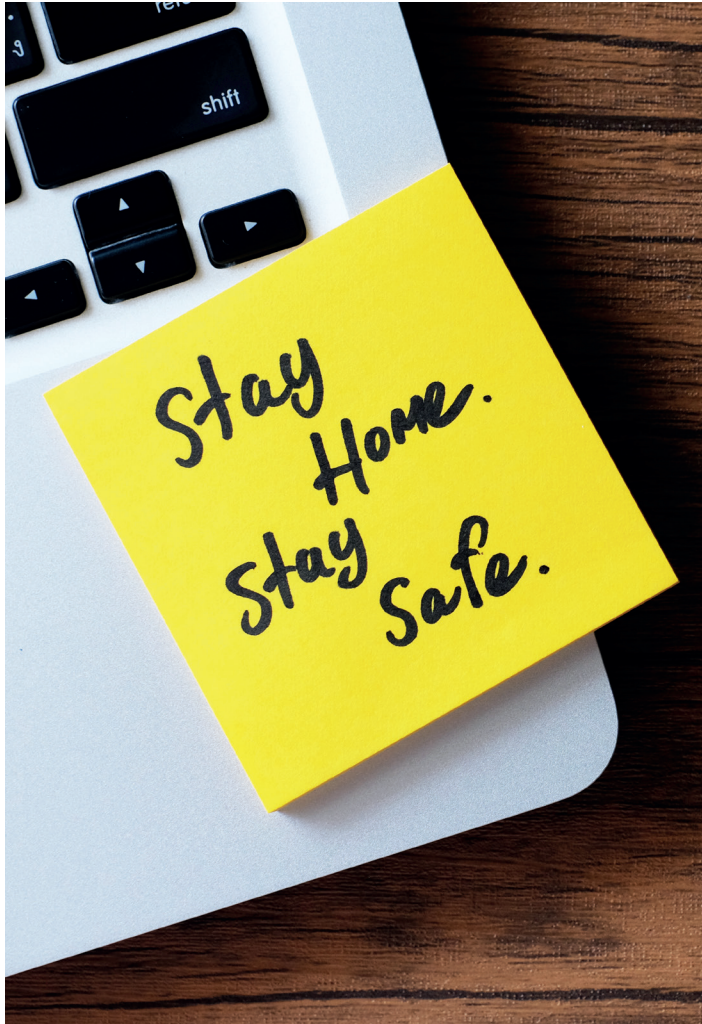 shift
Stay
Home.
Stay
Safe.